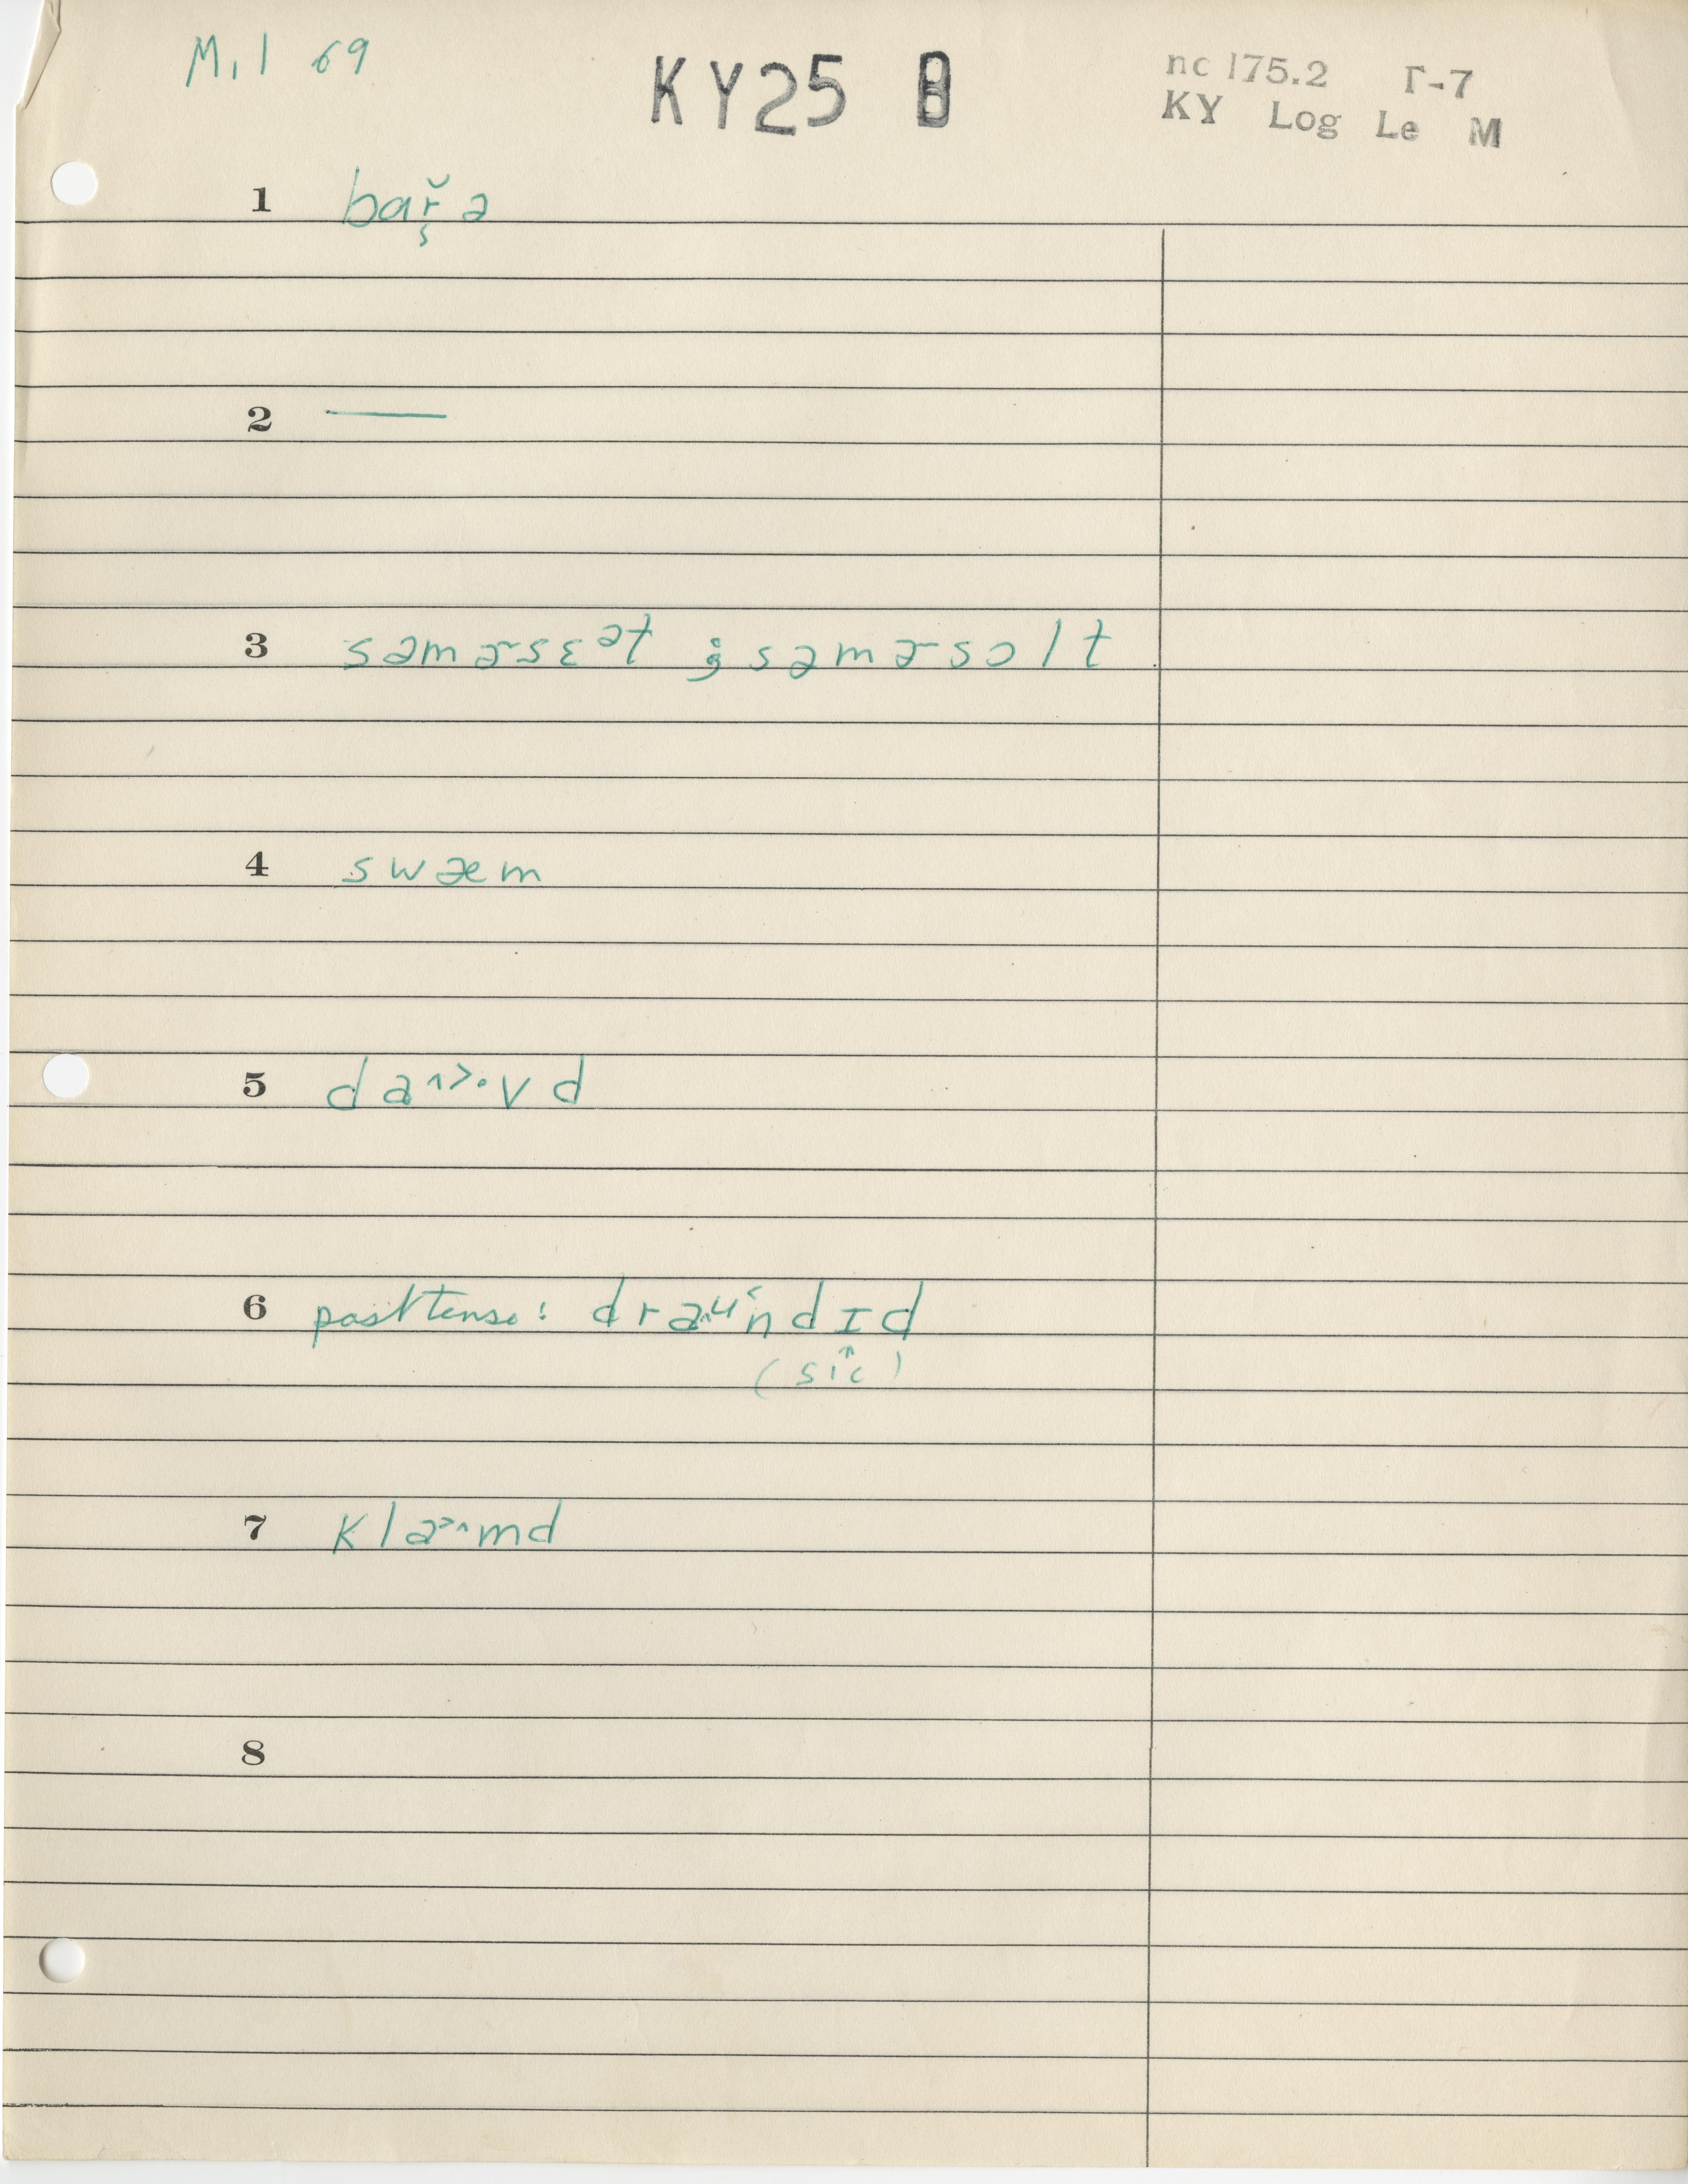 M, 1 69
KY25 B
nc 175.2 T-7
KY Log Le M
1 bař̜ə
2 —
3 səmɚsɛᵊt ; səmɚsolt
4 swæm
5 da^>·vd
6 past tense: draᵘ^<ndɪd
(sic)
7 kla>^md
8